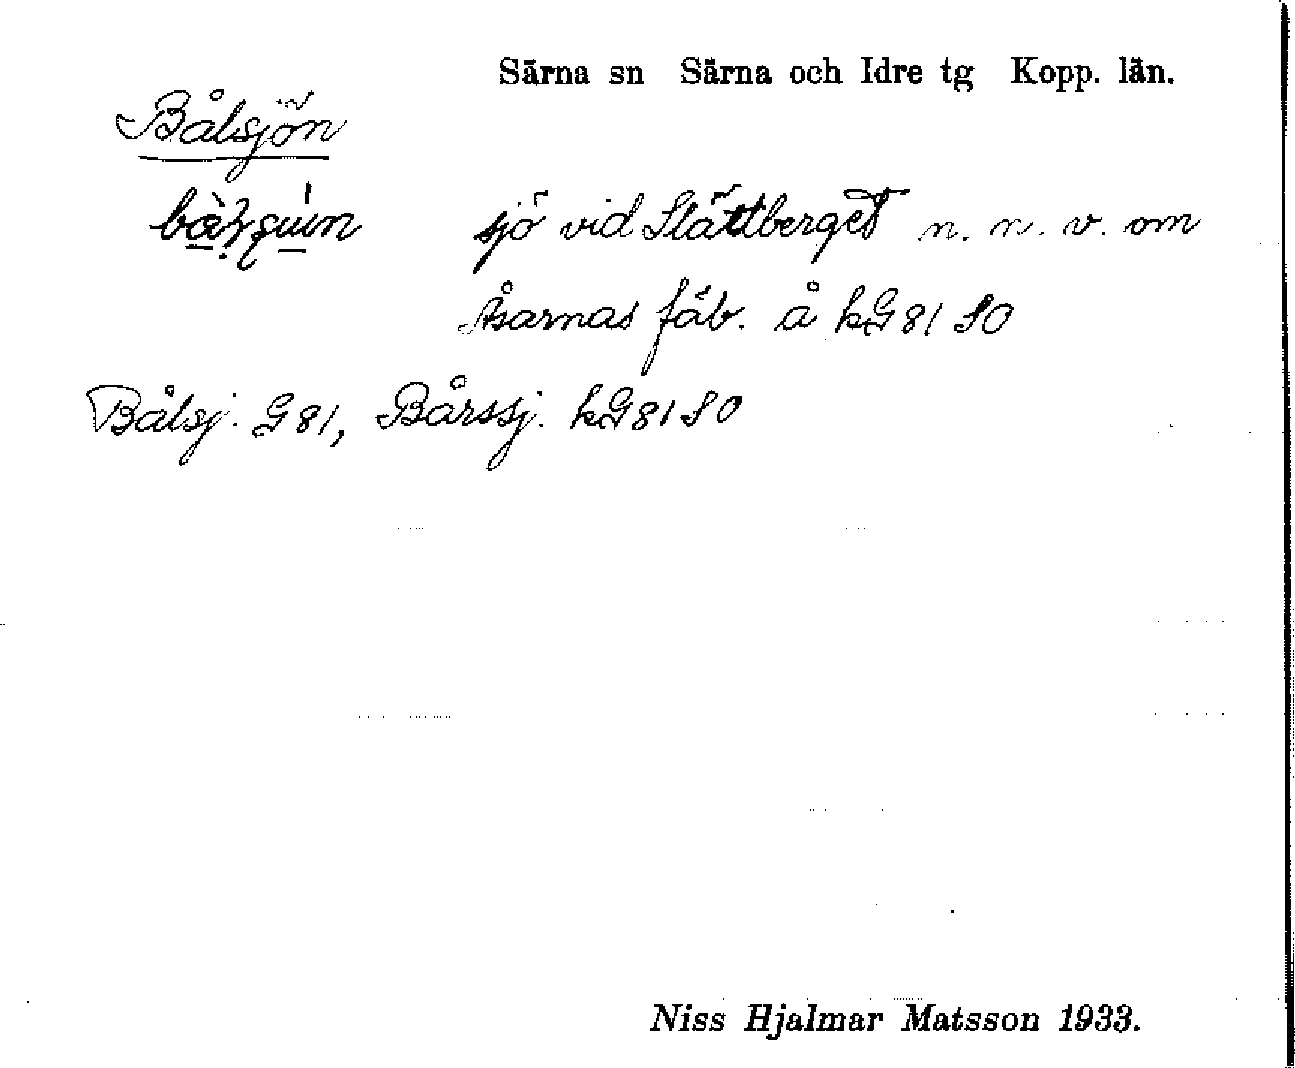 Särna sn Särna och Idre tg Kopp. län.
Bålsjön
sjö vid Slättberget n. n. v. om
Åsarnas fäb. å kG 81 SO
Bålsj. G 81, Bårssj. kG 81 SO
Niss Hjalmar Matsson 1933.